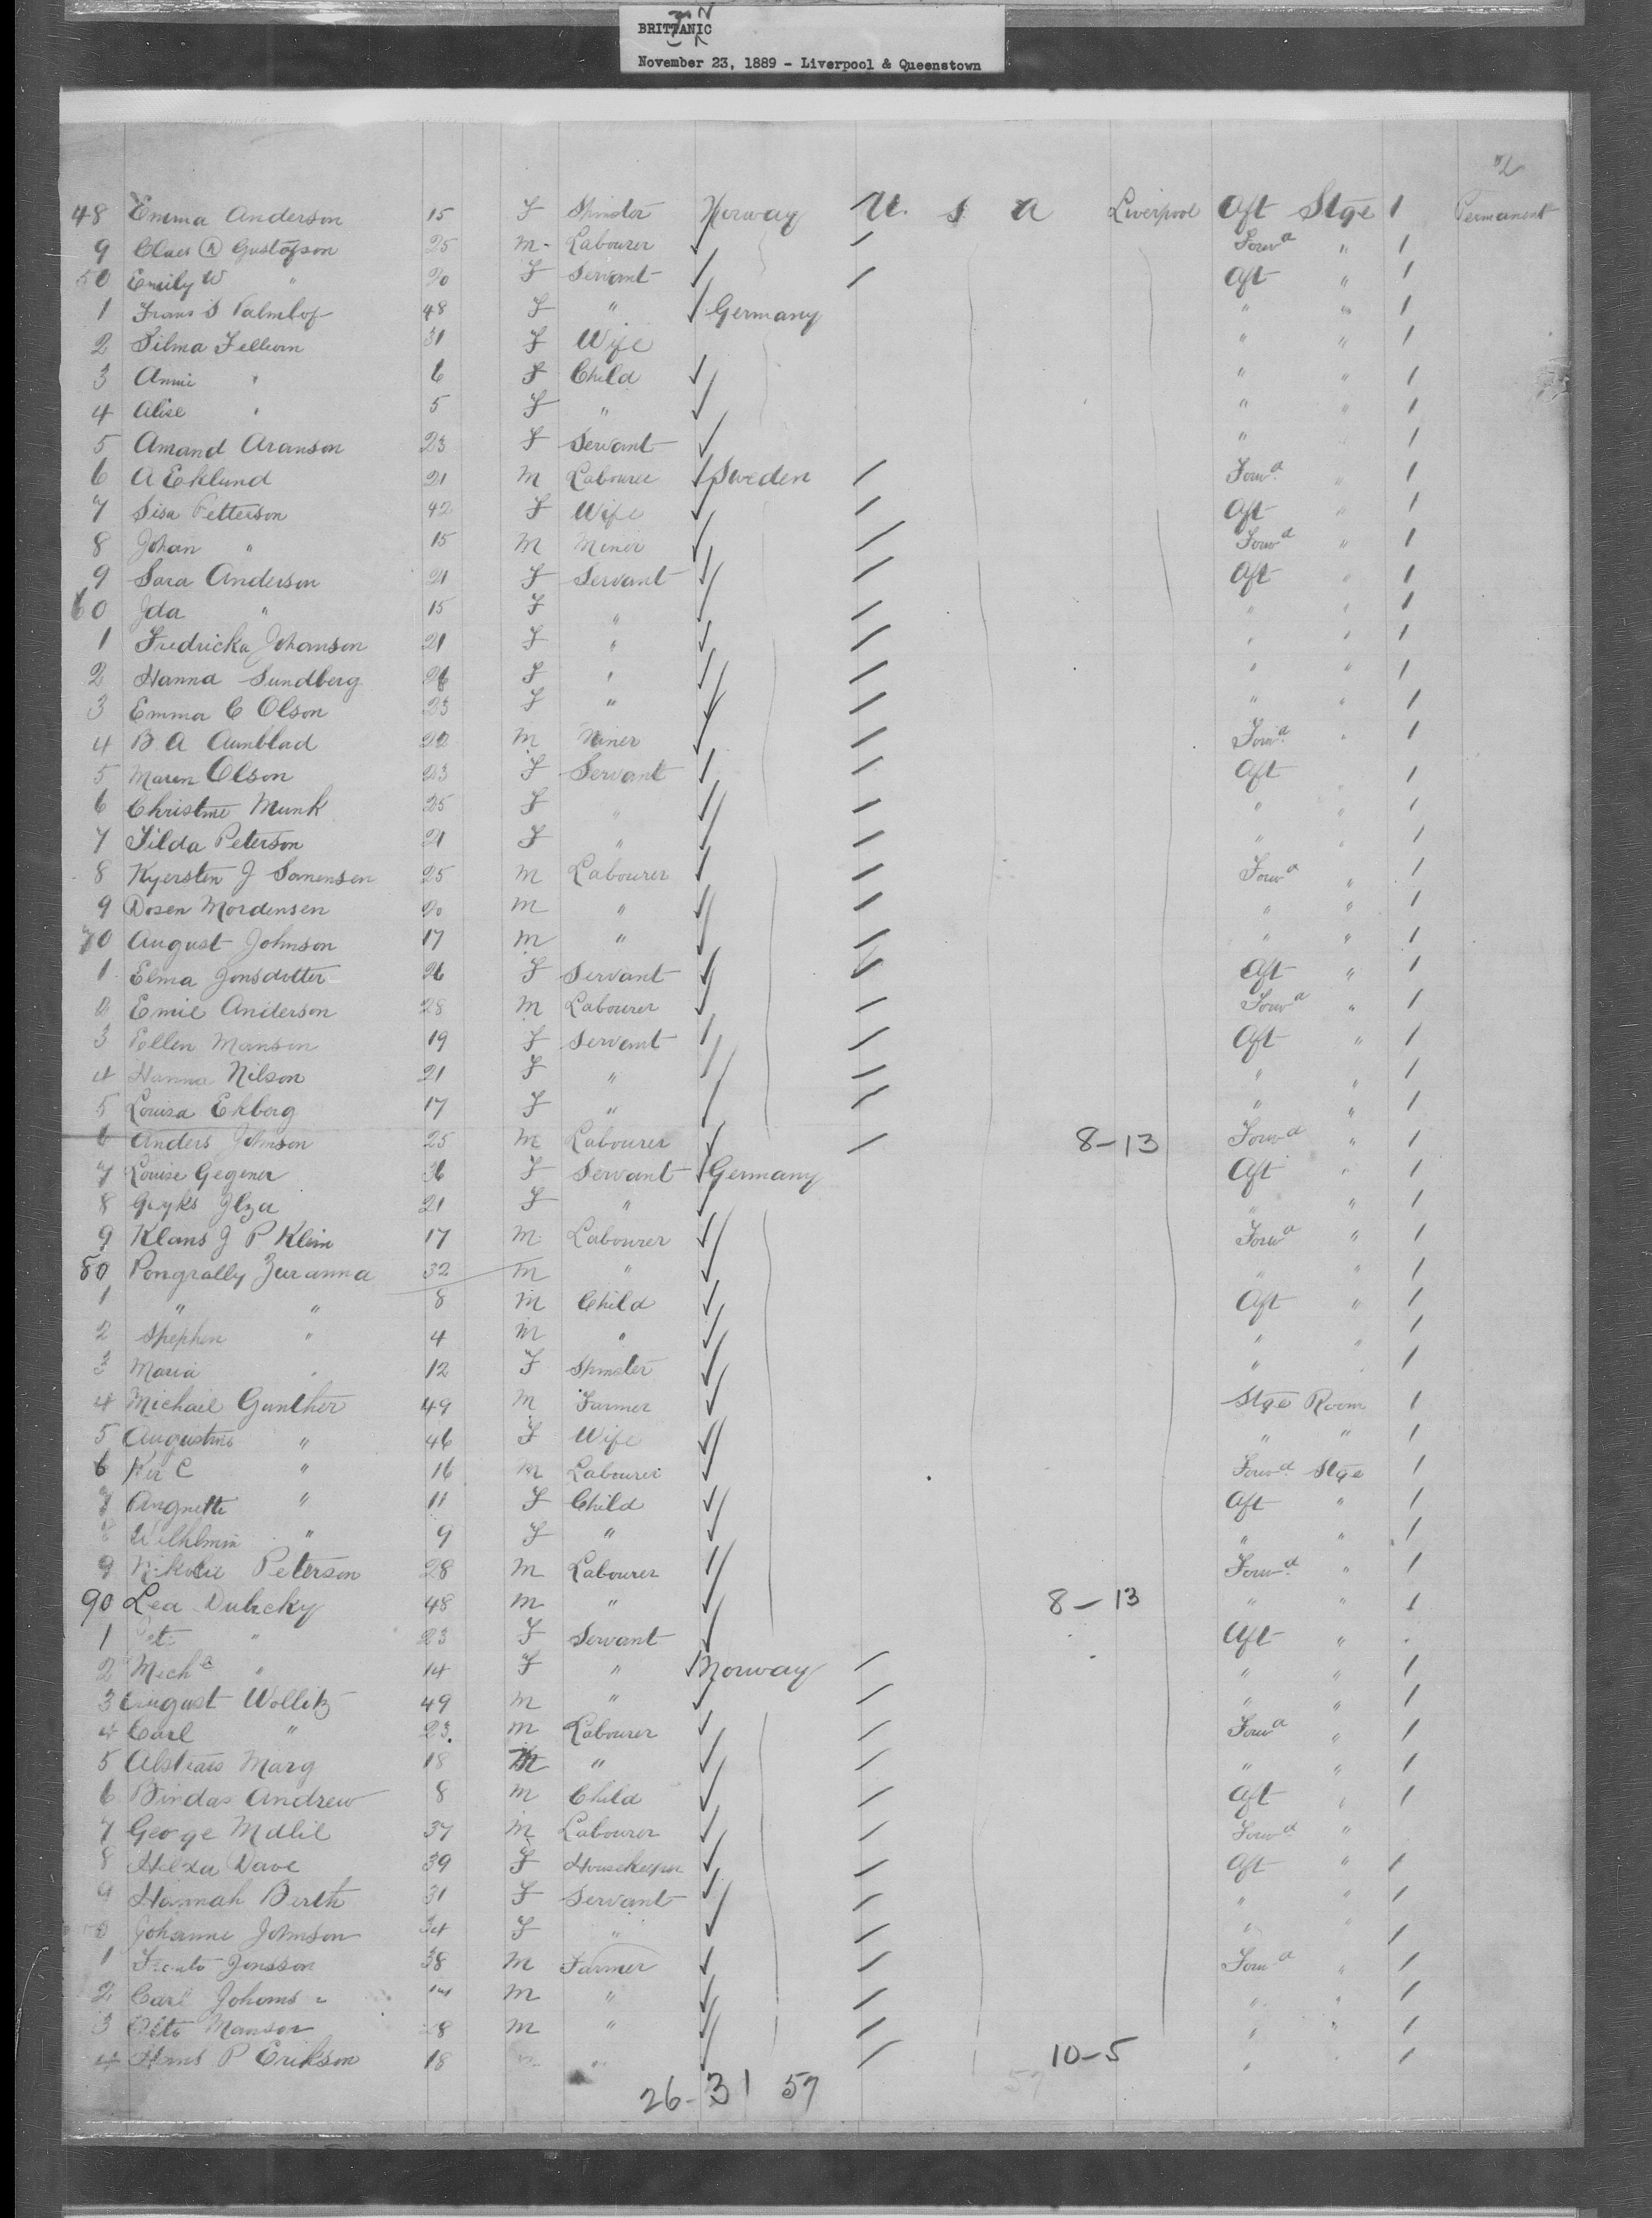 BRITTANIC N
November 23, 1889 - Liverpool & Queenstown
2
48 Emma Anderson 15 F Spinster Norway U. S A Liverpool Aft Stge 1 Permanent
9 Claes A Gustafson 25 m Labourer ✓ / Forwd " 1
50 Emily W " 20 F Servant ✓ / Aft " 1
1 Frans S Palmlof 48 F " ✓ Germany " " 1
2 Silma Fellion 31 F Wife " " 1
3 Annie " 6 F Child ✓ " " 1
4 Alise " 5 F " ✓ " " 1
5 Amand Aranson 23 F Servant ✓ " 1
6 A Eklund 21 m Labourer ✓ Sweden / Forwd " 1
7 Sisa Petterson 42 F Wife ✓ / Aft " 1
8 Johan " 15 m Miner ✓ / Forwd " 1
9 Sara Anderson 21 F Servant ✓ / Aft " 1
60 Ida " 15 F " ✓ / " " 1
1 Fredricka Johanson 21 F " ✓ / " " 1
2 Hanna Sundberg 26 F " ✓ / " " 1
3 Emma C Olson 23 F " ✓ / " " 1
4 B. A Aunblad 22 m Miner ✓ / Forwd " 1
5 Maren Olson 23 F Servant ✓ / Aft 1
6 Christine Munk 25 F " ✓ / " " 1
7 Tilda Peterson 21 F " ✓ / " " 1
8 Kyersten J Sorensen 25 m Labourer ✓ / Forwd " 1
9 Dosen Mordensen 20 m " ✓ / " " 1
70 August Johnson 17 m " ✓ / " " 1
1 Elma Jonsdotter 26 F Servant ✓ / Aft " 1
2 Emil Anderson 28 m Labourer ✓ / Forwd " 1
3 Pellen Manson 19 F Servant / / Aft " 1
4 Hanna Nilson 21 F " / / " " 1
5 Louisa Ekberg 17 F " / / " " 1
6 Anders Johnson 25 m Labourer ✓ / 8-13 Forwd " 1
7 Louise Gegener 36 F Servant ✓ Germany Aft " 1
8 Geyks Ilza 21 F " ✓ " " 1
9 Klaus J P Klein 17 m Labourer ✓ Forwd " 1
80 Pongrally Zuranna 32 m " ✓ " " 1
1 " " 8 m Child ✓ Aft " 1
2 Stephen " 4 m " ✓ " " 1
3 Maria " 12 F Spinster ✓ " " 1
4 Michael Gunther 49 m Farmer ✓ Stge Room 1
5 Augustine " 46 F Wife ✓ " " 1
6 C " 16 m Labourer ✓ Forwd Stge 1
7 Angnette " 11 F Child ✓ Aft " 1
8 Wilhelmin " 9 F " ✓ " " 1
9 Nikolie Peterson 28 m Labourer ✓ Forwd " 1
90 Lea Dubcky 48 m " ✓ 8-13 " " 1
1 " 23 F Servant ✓ Aft "
2 Mech " 14 F " ✓ Norway / " " 1
3 August Wollitz 49 m " ✓ / " " 1
4 Carl " 23 m Labourer ✓ / Forwd " 1
5 Marg 18 m " ✓ / " " 1
6 Bindas Andrew 8 m Child ✓ / Aft " 1
7 George Mdlil 37 m Labourer ✓ / Forwd "
8 Hilda Dave 39 F Housekeeper ✓ / Aft " 1
9 Hannah Berth 31 F Servant ✓ / " " 1
0 Johanne Johnson 34 F " ✓ / " " 1
1 Jonsson 38 m Farmer ✓ / Forwd " 1
2 Carl m " ✓ / " " 1
3 Otto Manson 28 m " ✓ / " " 1
4 Hans P Erikson 18 " ✓ / 10-5 " 1
26-31 57 57